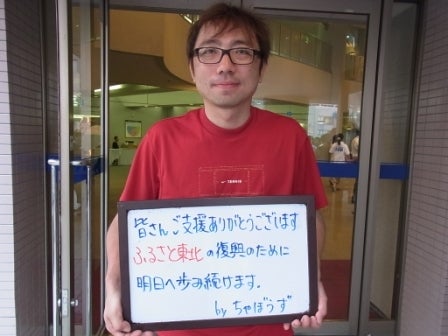 皆さんご支援ありがとうございます
ふるさと東北の復興のために
明日へ歩み続けます.
by ちゃぼうず